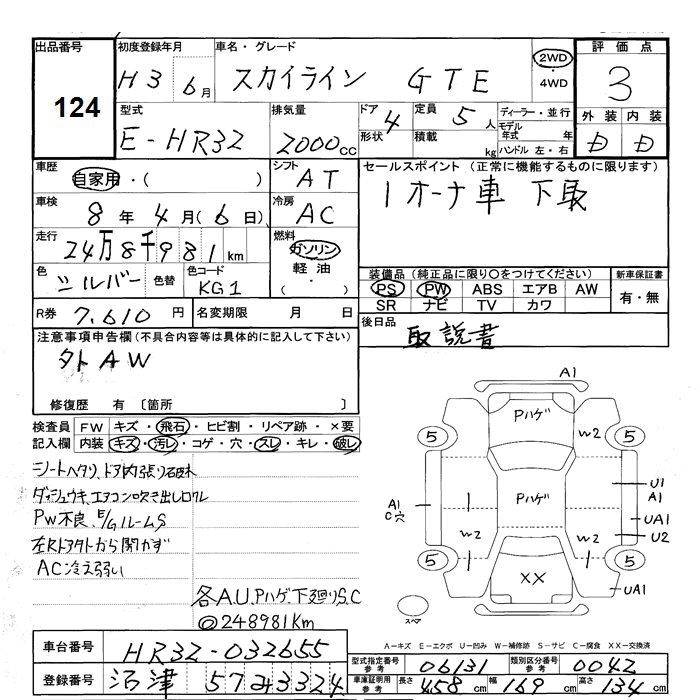 出品番号 初度登録年月 車名・グレード 評価点
124 H3 6月 スカイライン GTE 2WD・4WD 3
型式 排気量 ドア 定員 ディーラー・並行 外装 内装
E-HR32 2000cc 4 5人 モデル年式 年 D D
形状 積載 kg ハンドル 左・右
車歴 自家用・( ) シフト AT セールスポイント (正常に機能するものに限ります)
車検 8年4月(6日) 冷房 AC 1オーナ車 下取
走行 24万8千981km 燃料 ガソリン
色 シルバー 色替 色コード KG1 軽油 ( ・ )
装備品(純正品に限り○をつけてください) 新車保証書
PS PW ABS エアB AW 有・無
SR ナビ TV カワ
R券 7,610円 名変期限 月 日 後日品 取説書
注意事項申告欄(不具合内容等は具体的に記入して下さい)
外AW
修復歴 有 〔箇所 〕
検査員 FW キズ・飛石・ヒビ割・リペア跡・×要
記入欄 内装 キズ・汚レ・コゲ・穴・スレ・キレ・破レ
シートヘタリ、ドア内張り破木
ダッシュウキ、エアコン吹き出し口ワレ
PW不良、E/GルームS
左Rドア外から開かず
AC冷え弱い
各A.U.Pハゲ.下廻りS.C
◎248981Km
A1
Pハゲ
5 W2 5
U1
A1
A1 Pハゲ UA1
C穴 U2
W2 W2
5 XX 5
UA1
スペア
A-キズ E-エクボ U-凹み W-補修跡 S-サビ C-腐食 XX-交換済
車台番号 HR32-032655
登録番号 沼津 57 み 3324
型式指定番号 参考 06131 類別区分番号 参考 0042
車庫証明用 参考 長さ 458cm 幅 169cm 高さ 134cm